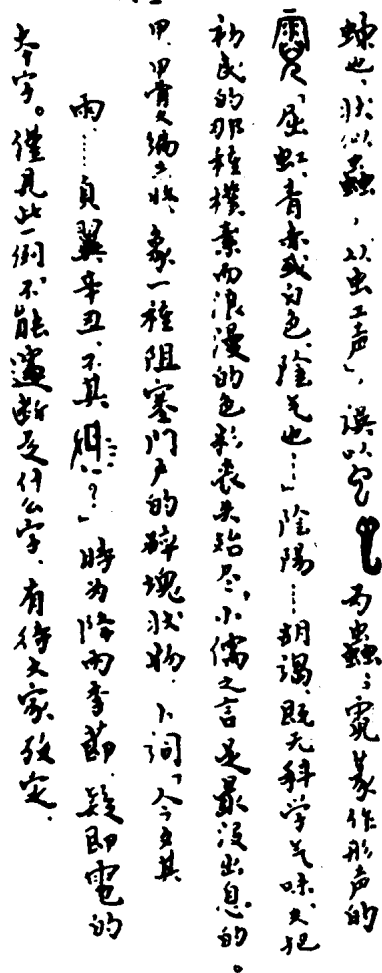 蝀也、状似蟲,从虫工声」,误以它 为蟲;霓篆作形声的
「屈虹、青赤或白色、陰气也……」陰陽……胡谒、既无科学气味、又把
初民的那種樸素而浪漫的色彩丧失殆尽,小儒之言是最没出息的。
甲、甲骨文编 象一種阻塞门户的碎塊状物,卜词「今五其
雨、……貞翼辛丑、不其 ?」時为降雨季節、疑即電的
本字。僅見此一例、不能遽断是什么字、有待大家 定.